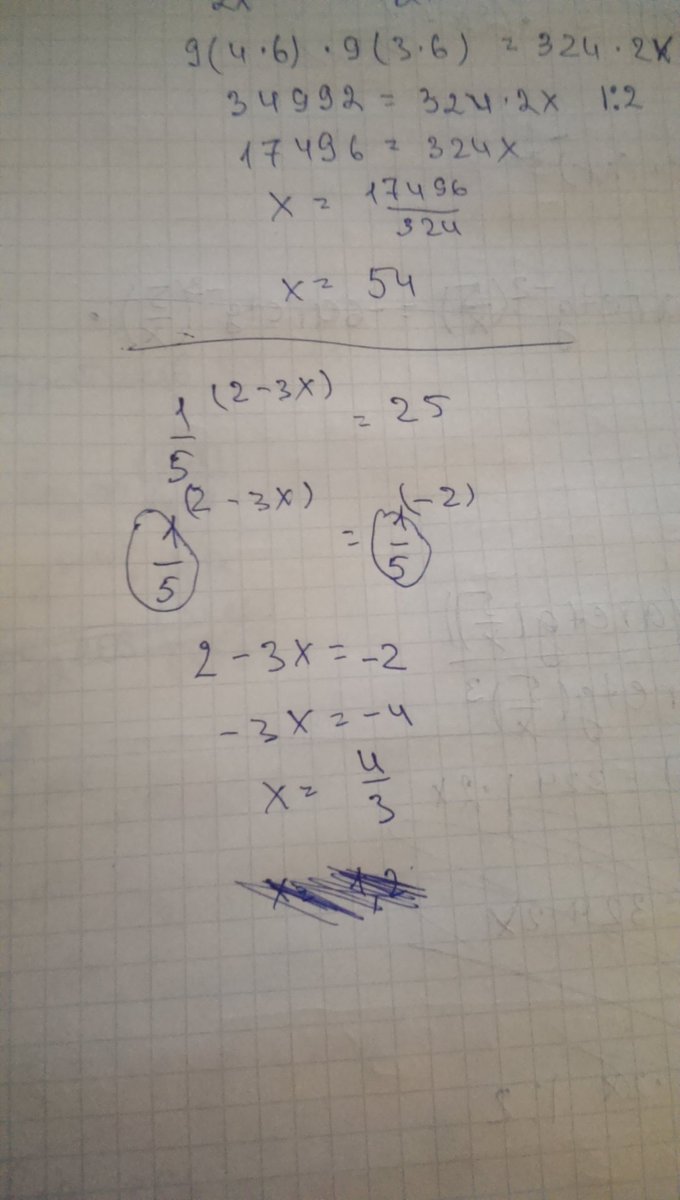 9(4·6)·9(3·6) = 324·2x
34992 = 324·2x 1:2
17496 = 324x
x = 17496/324
x = 54
1/5 (2-3x) = 25
1/5 (2-3x) = 1/5 (-2)
2-3x = -2
-3x = -4
x = 4/3